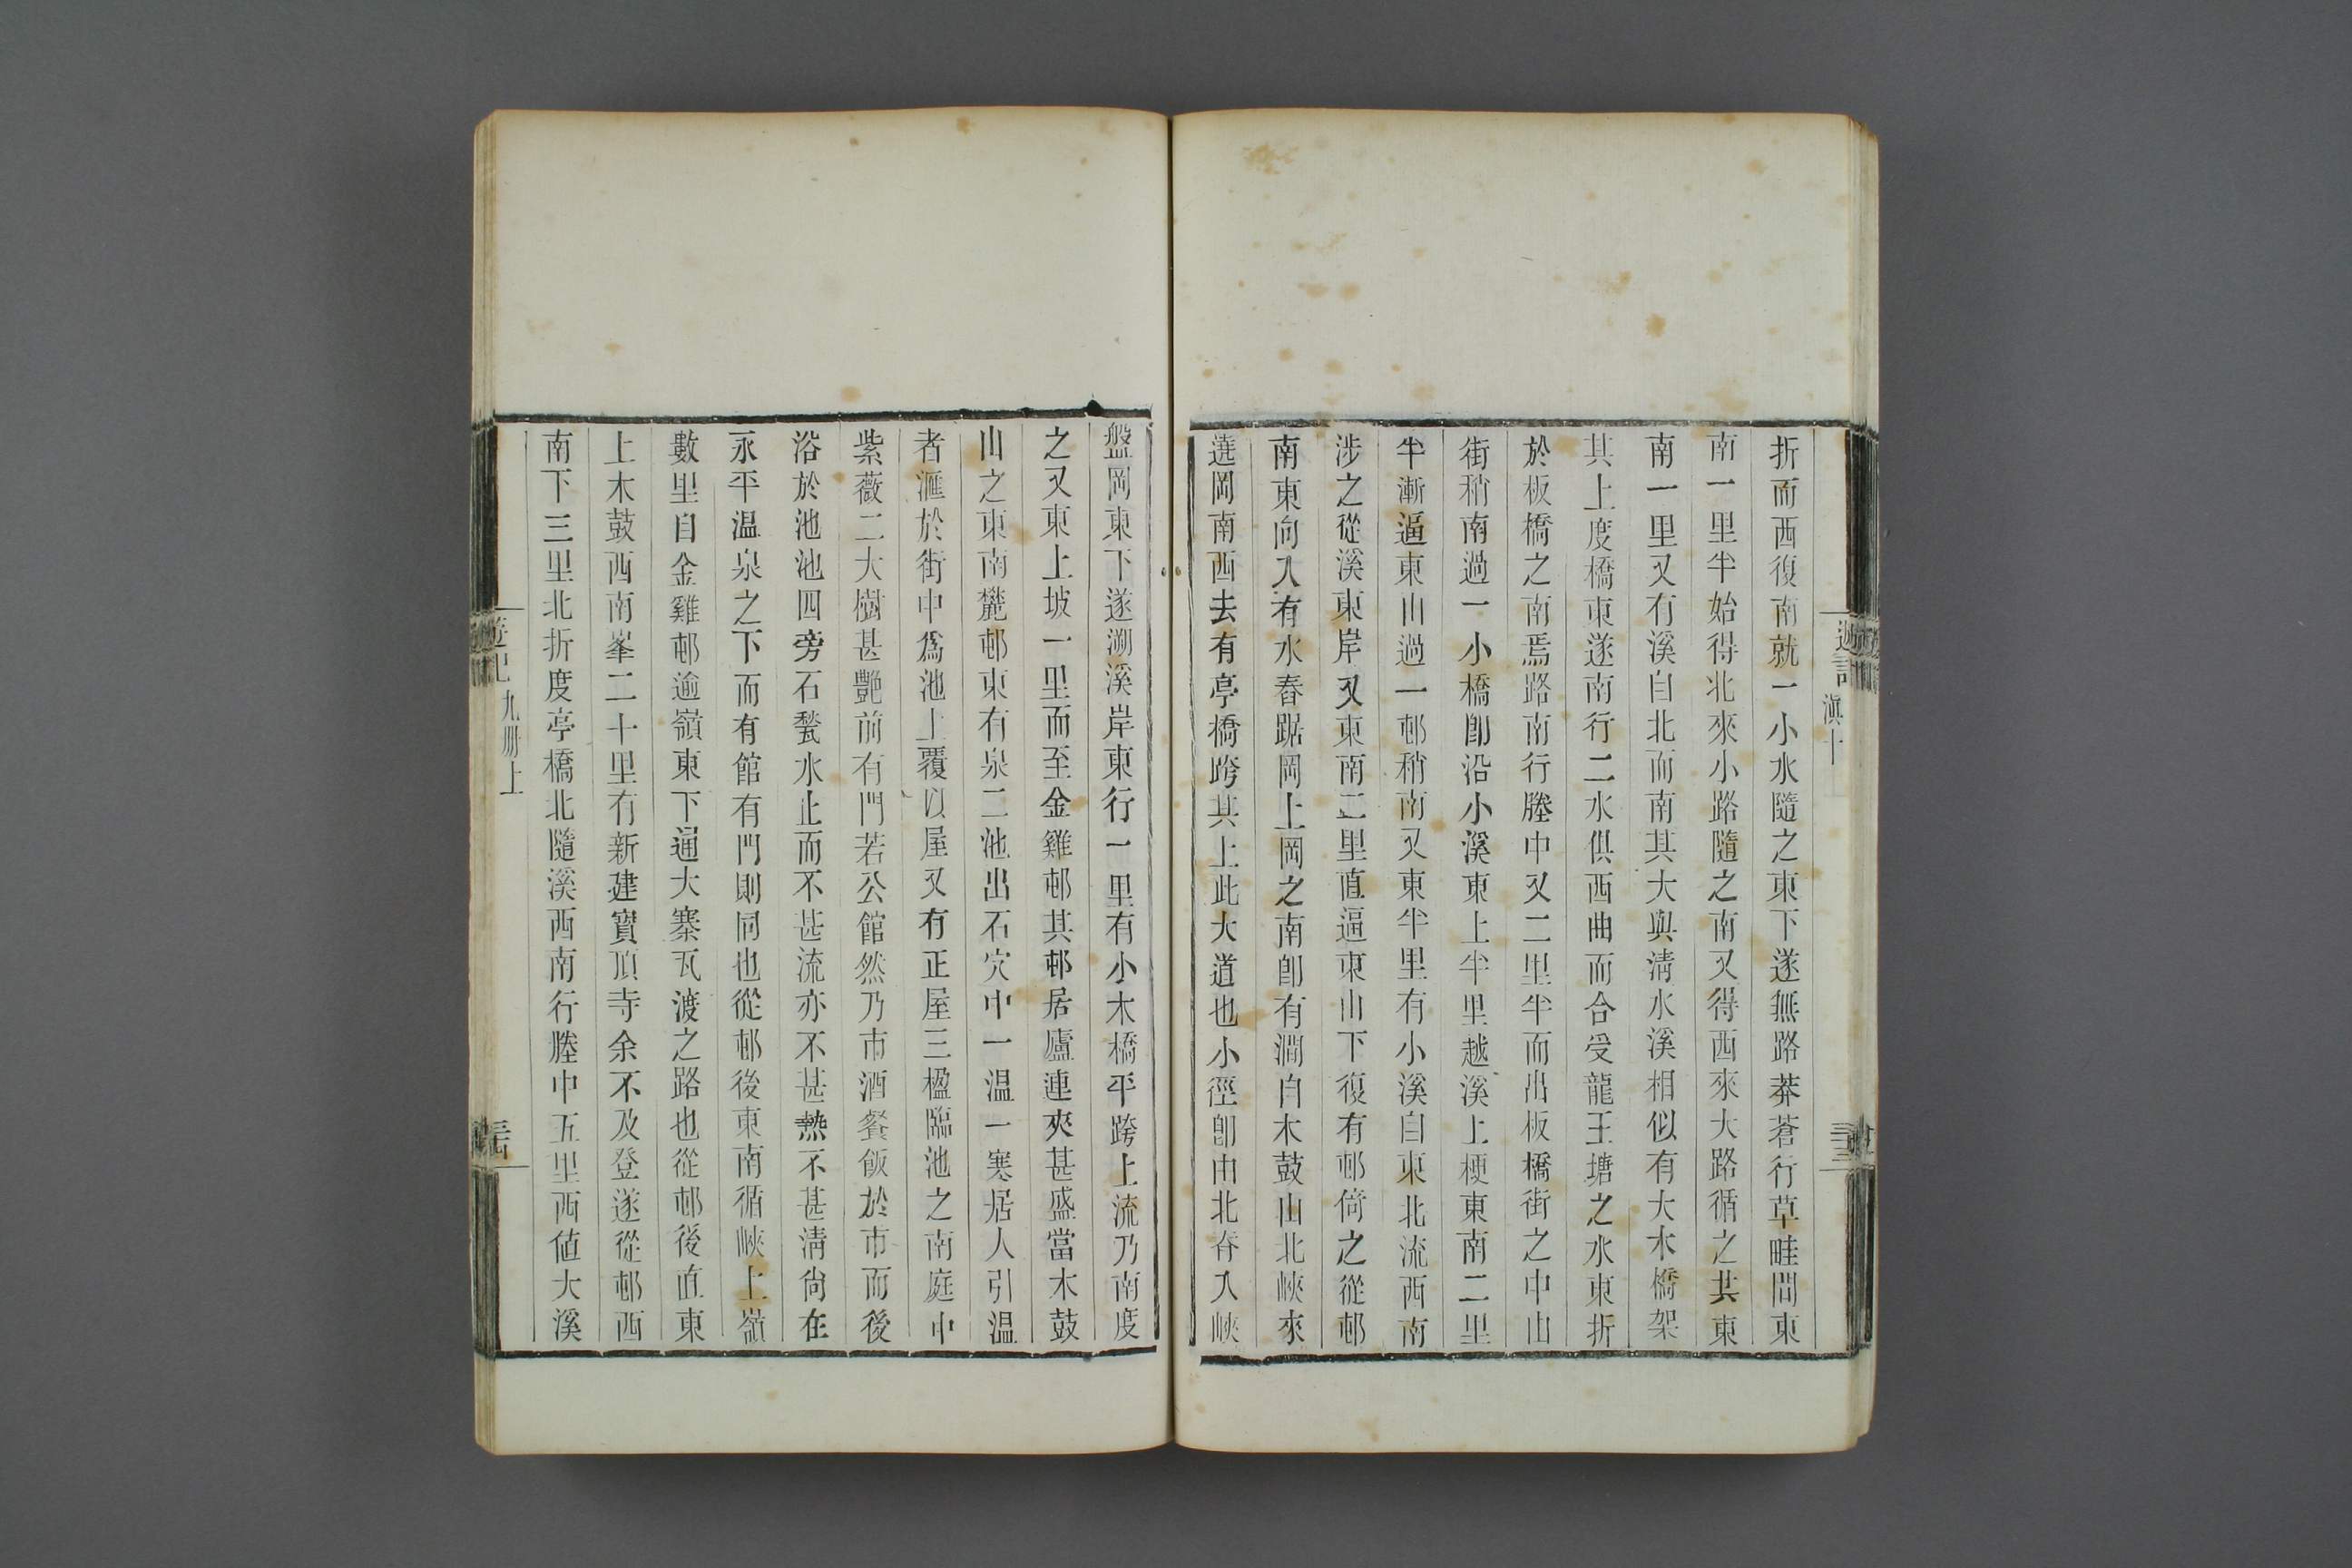 折而西復南就一小水隨之東下遂無路莽蒼行草畦間東
南一里半始得北來小路隨之南又得西來大路循之其東
南一里又有溪自北而南其大與淸水溪相似有大木橋架
其上度橋東遂南行二水俱西曲而合受龍王塘之水東折
於板橋之南焉路南行塍中又二里半而出板橋街之中由
街稍南過一小橋卽沿小溪東上半里越溪上梗東南二里
半漸逼東山過一邨稍南又東半里有小溪自東北流西南
涉之從溪東岸又東南二里直逼東山下復有邨倚之從邨
南東向入有水春踞岡上岡之南卽有澗自木鼓山北峽來
遶岡南西去有亭橋跨其上此大道也小徑卽由北春入峽
遊記
滇十
盤岡東下遂溯溪岸東行一里有小木橋平跨上流乃南度
之又東上坡一里而至金雞邨其邨居廬連夾甚盛當木鼓
山之東南麓邨東有泉二池出石穴中一溫一寒居人引溫
者滙於街中爲池上覆以屋又有正屋三楹臨池之南庭中
紫薇二大樹甚艷前有門若公館然乃市酒餐飯於市而後
浴於池池四旁石甃水止而不甚流亦不甚熱不甚淸尙在
永平溫泉之下而有館有門則同也從邨後東南循峽上嶺
數里自金雞邨逾嶺東下通大寨瓦渡之路也從邨後直東
上木鼓西南峯二十里有新建寶頂寺余不及登遂從邨西
南下三里北折度亭橋北隨溪西南行塍中五里西值大溪
九册上